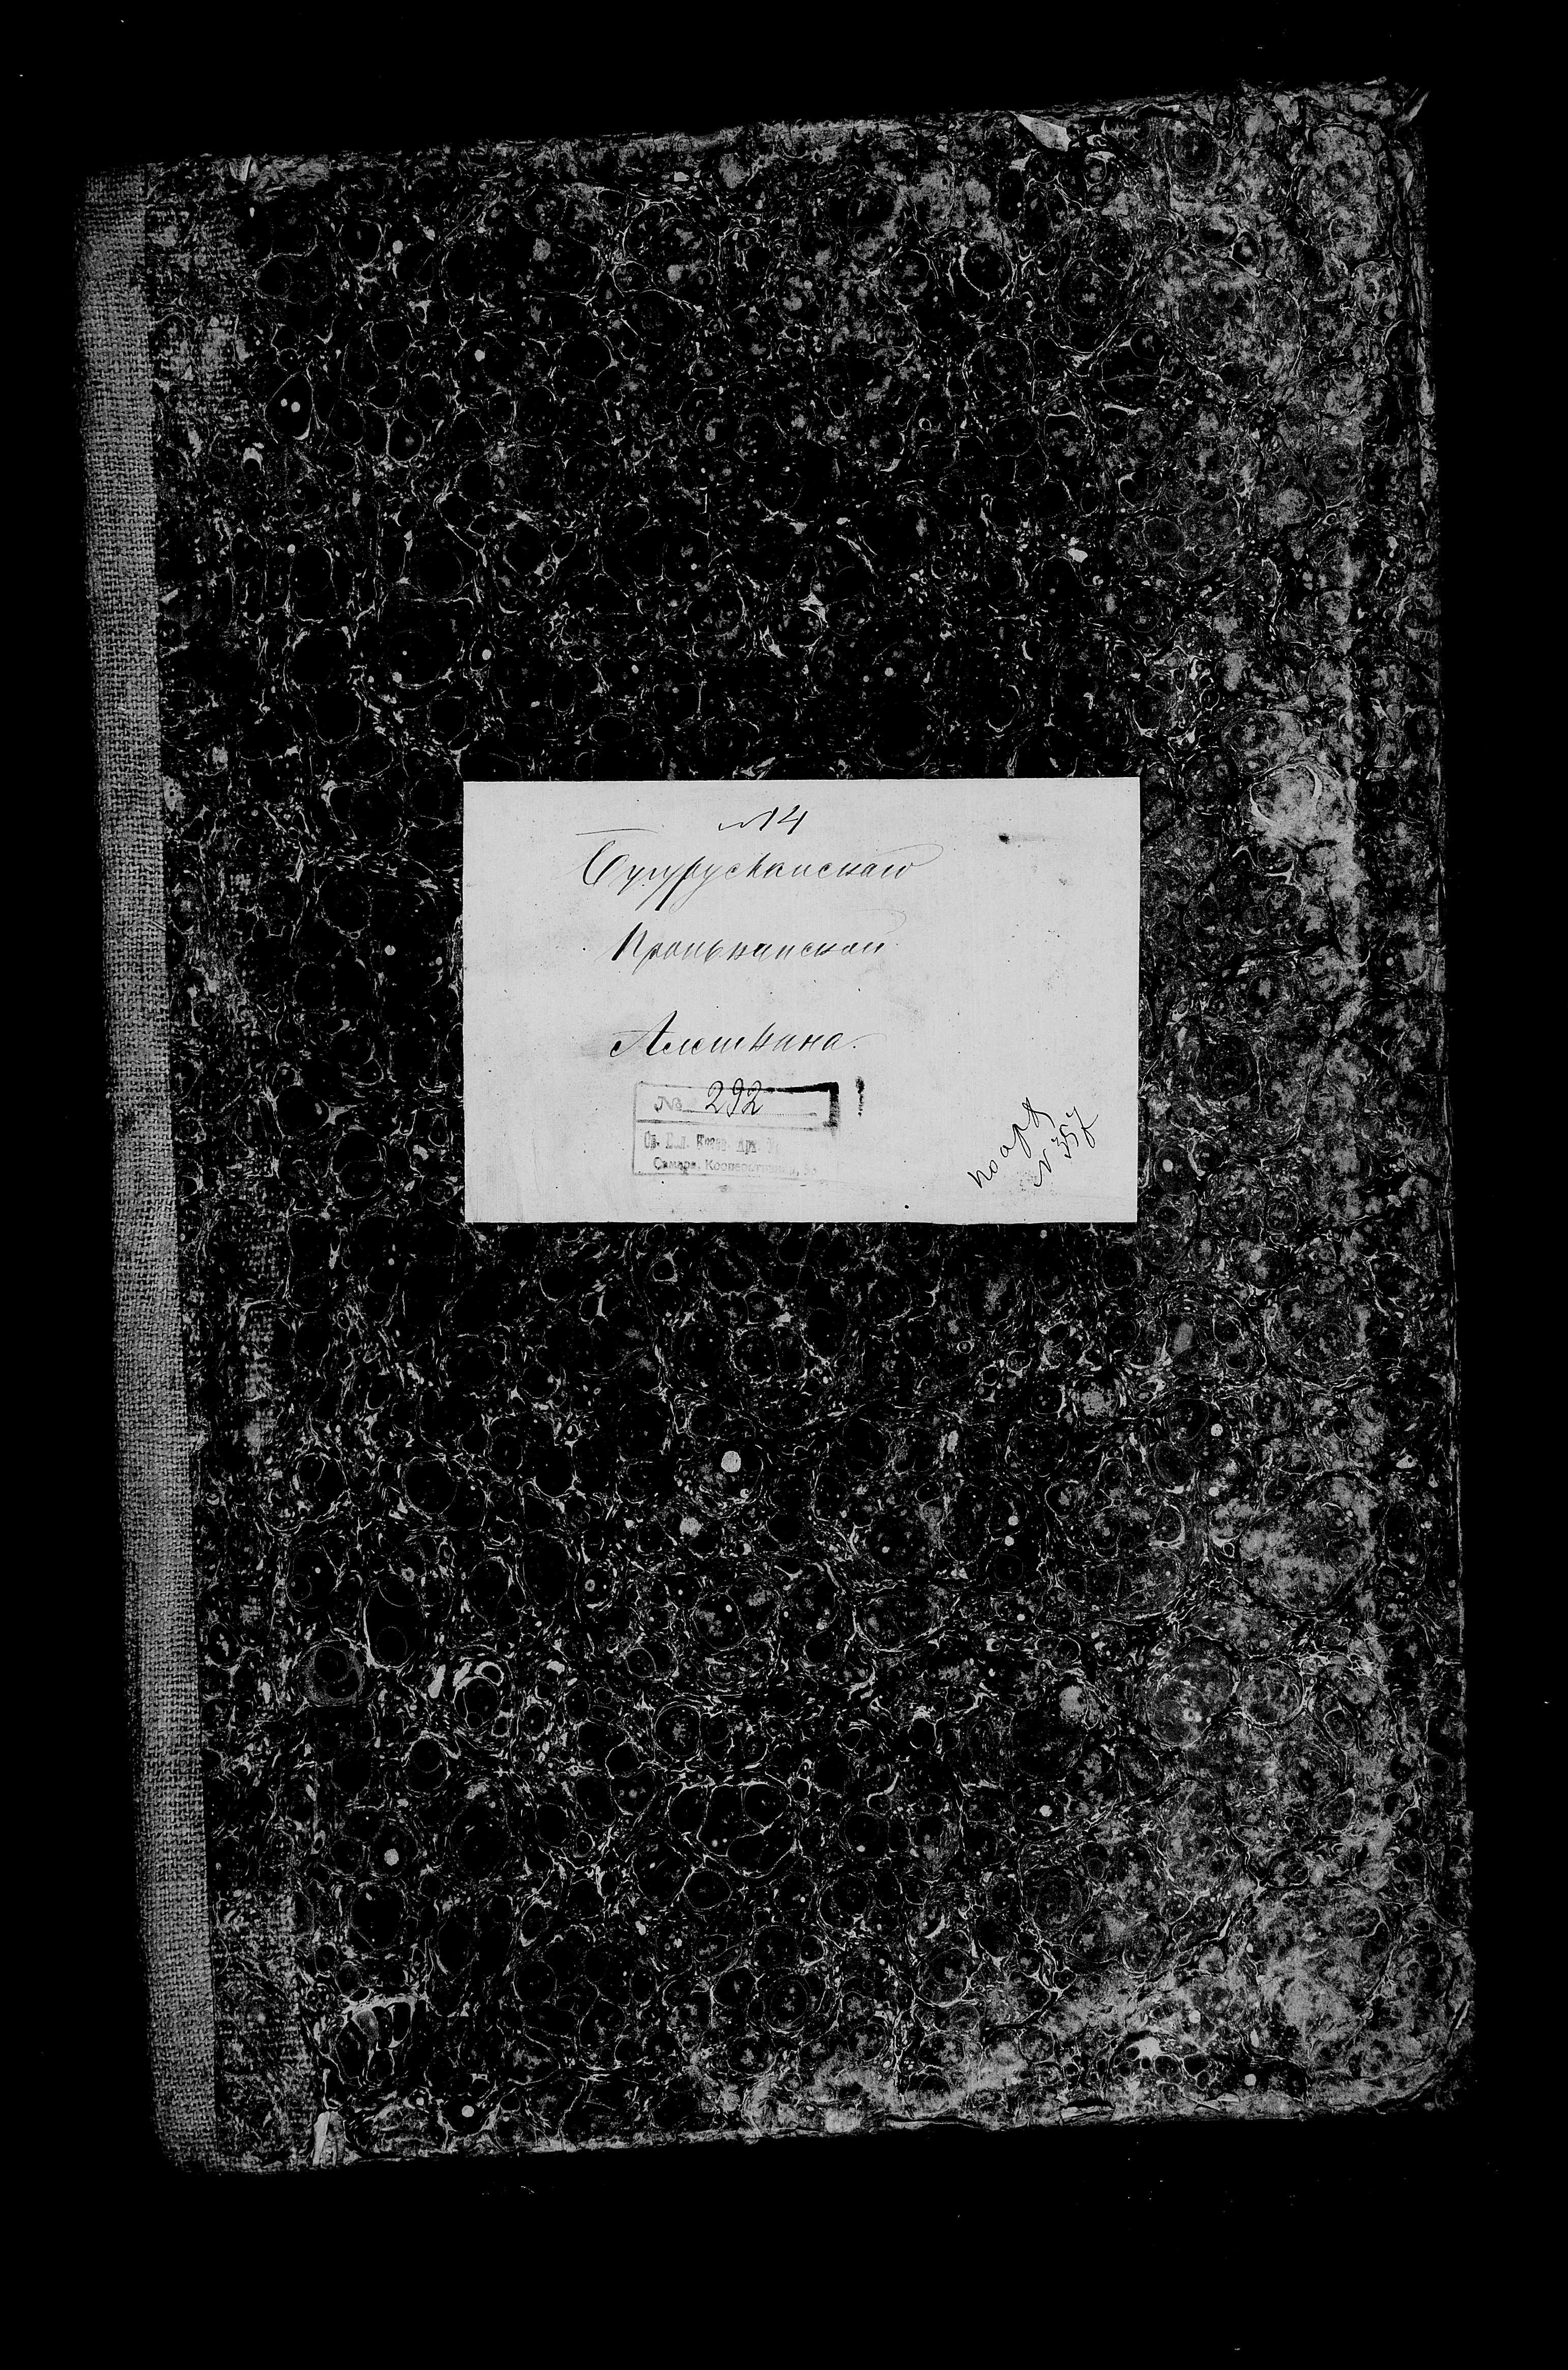 № 14
Бугурусланскаго
Пронькинской
Алешкина.
№ 292
Самара, Кооперативная,
по арх
№ 357